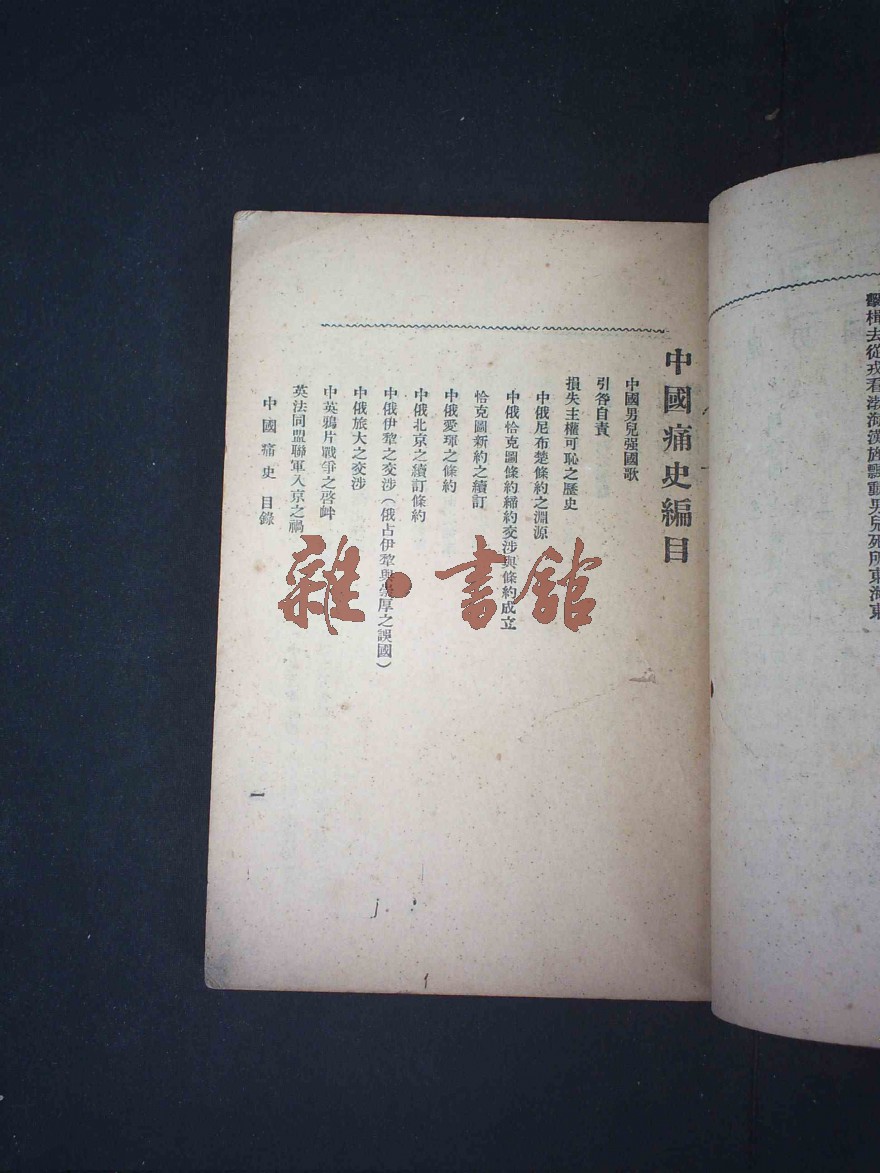 擊楫去從戎看渤海漢旌飄動男兒死所東海東
中國痛史編目
中國男兒强國歌
引咎自責
損失主權可恥之歷史
中俄尼布楚條約之淵源
中俄恰克圖條約締約交涉與條約成立
恰克圖新約之續訂
中俄愛琿之條約
中俄北京之續訂條約
中俄伊犂之交涉（俄占伊犂與崇厚之誤國）
中俄旅大之交涉
中英鴉片戰爭之啓衅
英法同盟聯軍入京之禍
中國痛史 目錄
一
雜·書館